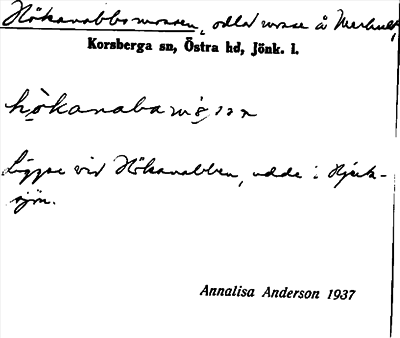 Hökanabbsmossen, odlad mosse å Merhult,
Korsberga sn, Östra hd, Jönk. l.
hökanabamosən
Ligger vid Hökanabben, udde i Hjärt-
sjön.
Annalisa Anderson 1937